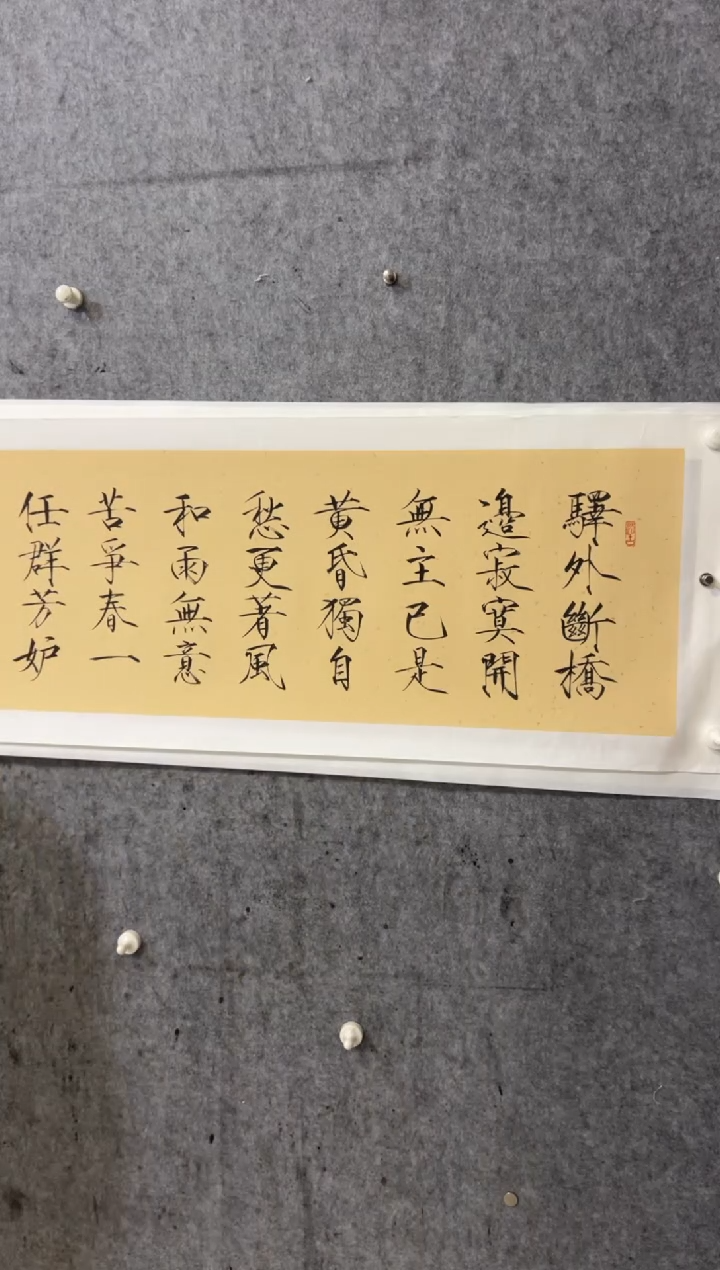 驛外斷橋
邉寂寞開
無主已是
黃昏獨自
愁更著風
和雨無意
苦爭春一
任群芳妒